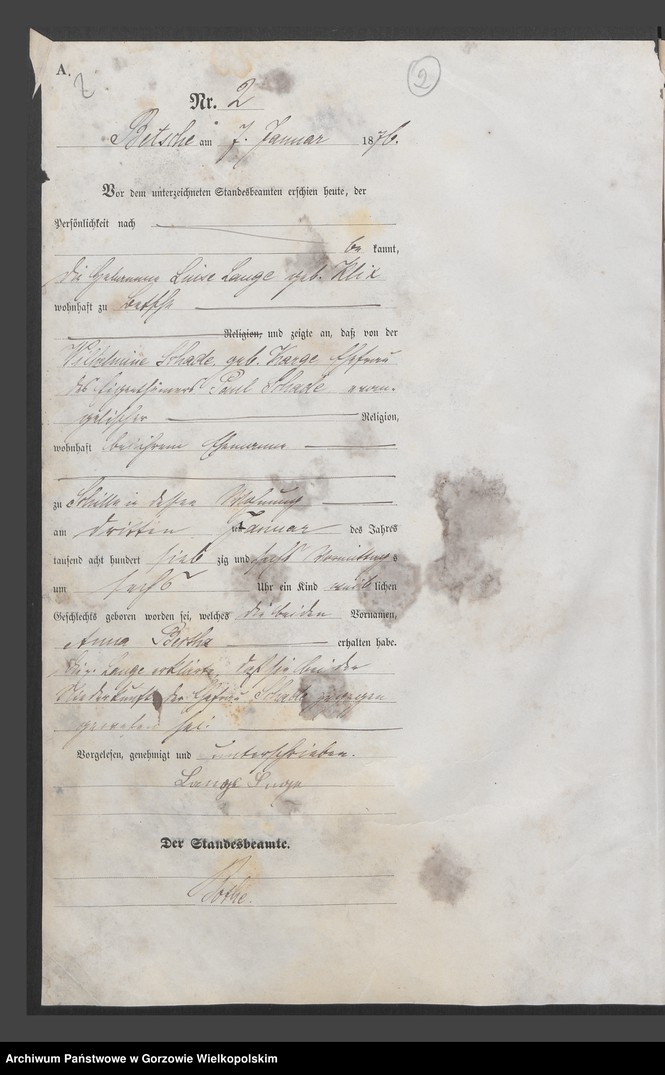 A.
2
Nr. 2
Betsche am 7. Januar 1876.
Vor dem unterzeichneten Standesbeamten erschien heute, der
Persönlichkeit nach
be kannt,
die Hebamme Luise Lange geb. Klix
wohnhaft zu Betsche
Religion, und zeigte an, daß von der
Wilhelmine Schade, geb. Karge Ehefrau
des Eigenthümers Paul Schade evan-
gelischer Religion,
wohnhaft bei ihrem Ehemanne
zu in dessen Wohnung
am dritten Januar des Jahres
tausend acht hundert sieb zig und sechs Vormittags
um sechs Uhr ein Kind weib lichen
Geschlechts geboren worden sei, welches die beiden Vornamen,
Anna Bertha erhalten habe.
Die Lange erklärte, daß sie bei der
Niederkunft der Ehefrau Schade zugegen
gewesen sei.
Vorgelesen, genehmigt und unterschrieben.
Lange
Der Standesbeamte.
Archiwum Państwowe w Gorzowie Wielkopolskim